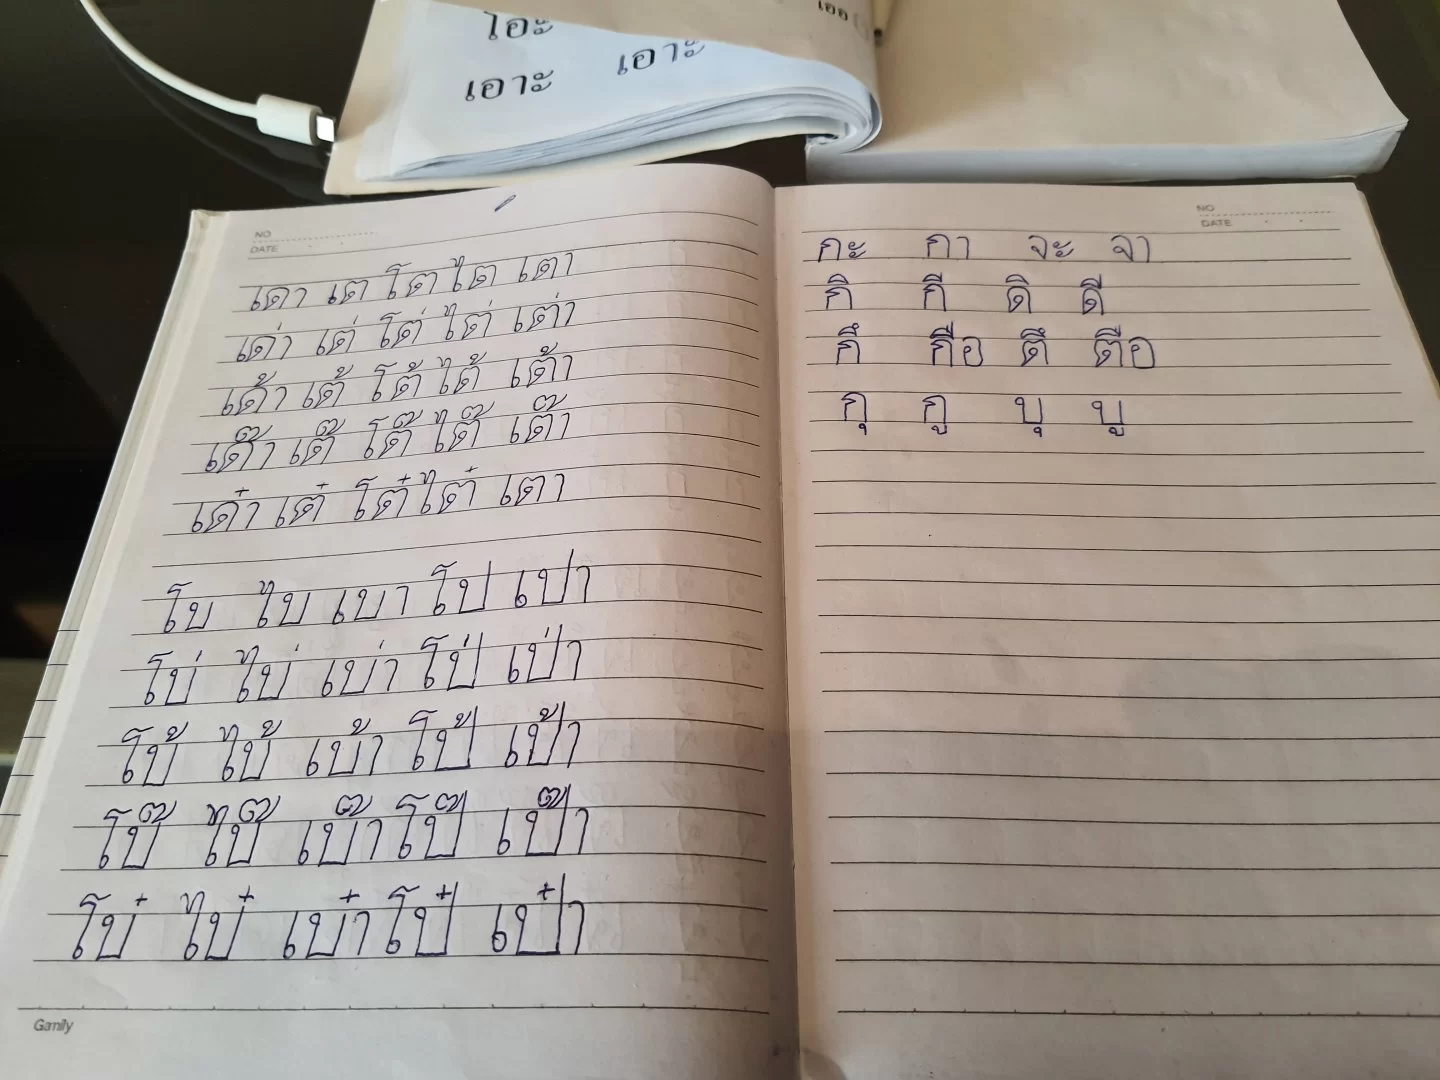 เออ
โอะ
เอาะ เอาะ
NO
DATE
เดา เต โต ไต เตา
เด่า เต่ โต่ ไต่ เต่า
เด้า เต้ โต้ ไต้ เต้า
เด๊า เต๊ โต๊ ไต๊ เต๊า
เด๋า เต๋ โต๋ ไต๋ เตา
โบ ไบ เบา โป เปา
โบ่ ไบ่ เบ่า โป่ เป่า
โบ้ ไบ้ เบ้า โป้ เป้า
โบ๊ ไบ๊ เบ๊า โป๊ เป๊า
โบ๋ ไบ๋ เบ๋า โป๋ เป๋า
Gamily
NO
DATE
กะ กา จะ จา
กิ กี ดิ ดี
กึ กือ ตึ ตือ
กุ กู บุ บู